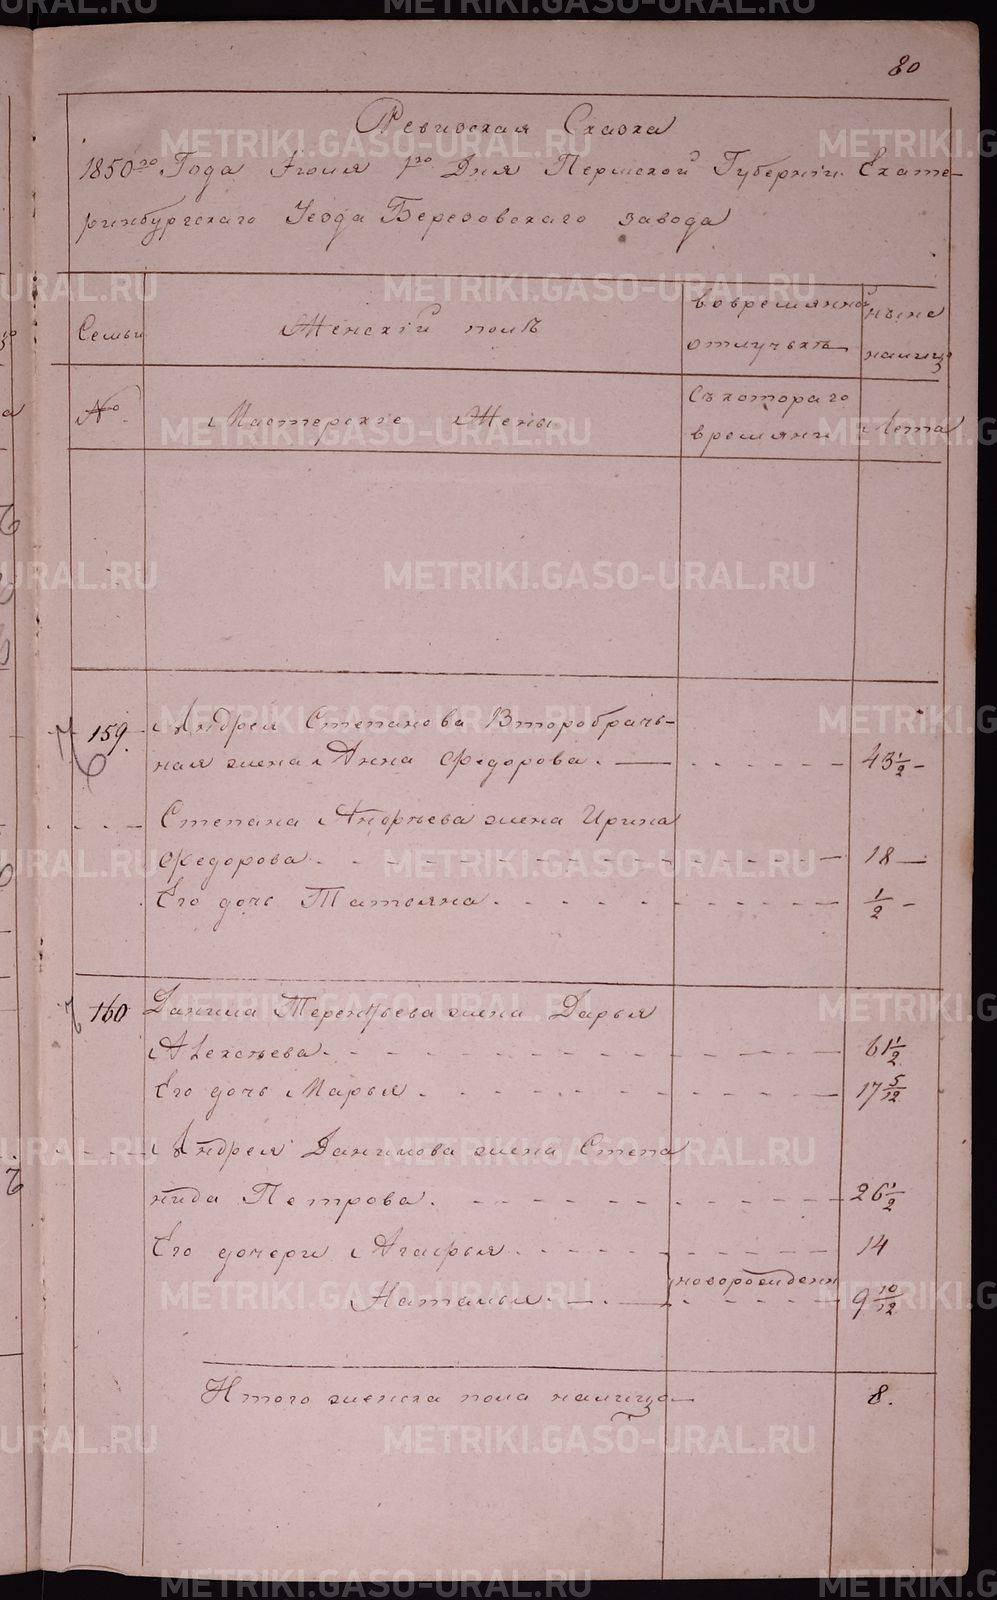 80
Ревизская Сказка
1850го Года Июля 1го Дня Пермской Губернiи Екате-
ринбургскаго Уезда Березовскаго завода
Семьи
Женскiй полъ
вовремянной
отлучьке
ныне
налицо
No
Мастерскiе Жены
Съ котораго
времяни
Лета
159.
Андрея Степанова Второбрачь-
ная жена Анна Федорова.
43 1/2
Степана Андреева жена Ирина
Федорова
18
Его дочь Татьяна
1/2
160
Данила Терентьева жена Дарья
Алексеева
61 1/2
Его дочь Марья
17 5/12
Андрея Данилова жена Степа
нида Петрова.
26 1/2
Его дочери Агафья
14
новорожденн
Наталья
9 10/12
Итого женска пола налицо
8.
METRIKI.GASO-URAL.RU